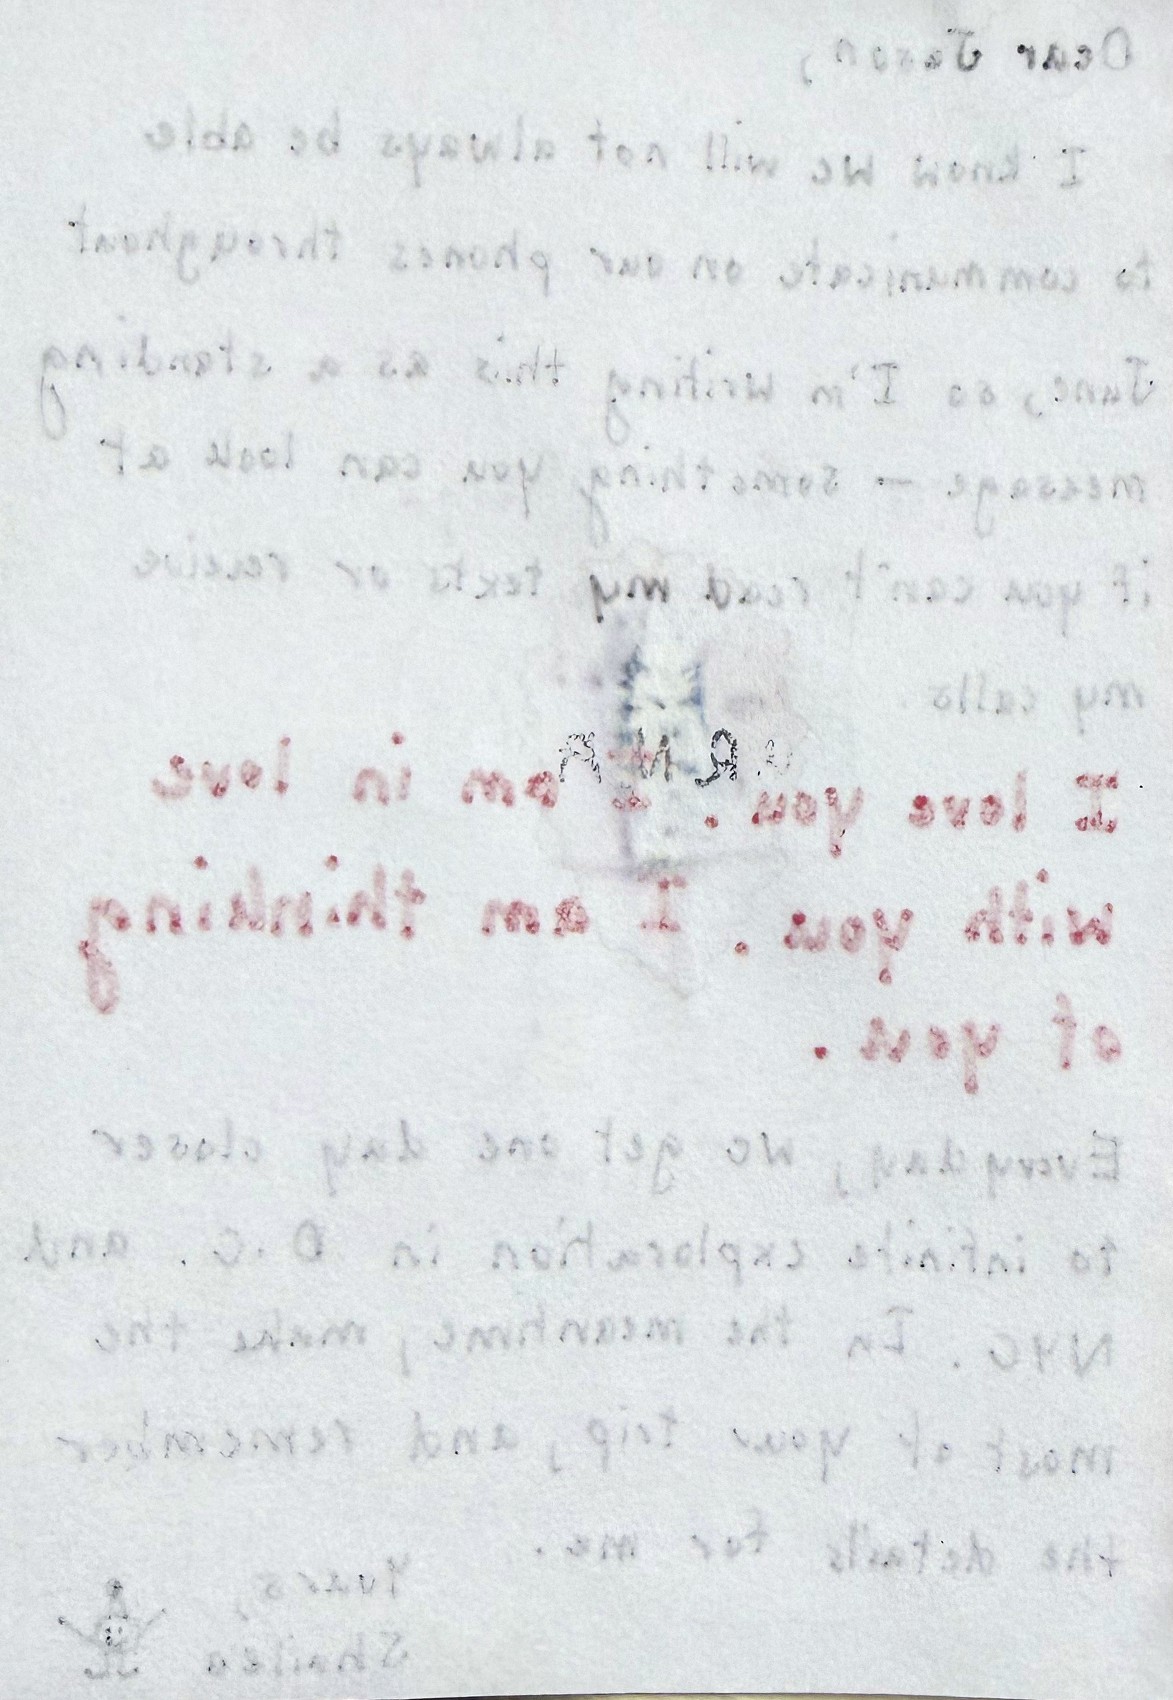 Dear Jason,
I know we will not always be able
to communicate on our phones throughout
June, so I'm writing this as a standing
message – something you can look at
if you can't read my texts or receive
my calls.
I love you. I am in love
with you. I am thinking
of you.
Everyday, we get one day closer
to infinite exploration in D.C. and
NYC. In the meantime, make the
most of your trip, and remember
the details for me.
Yours,